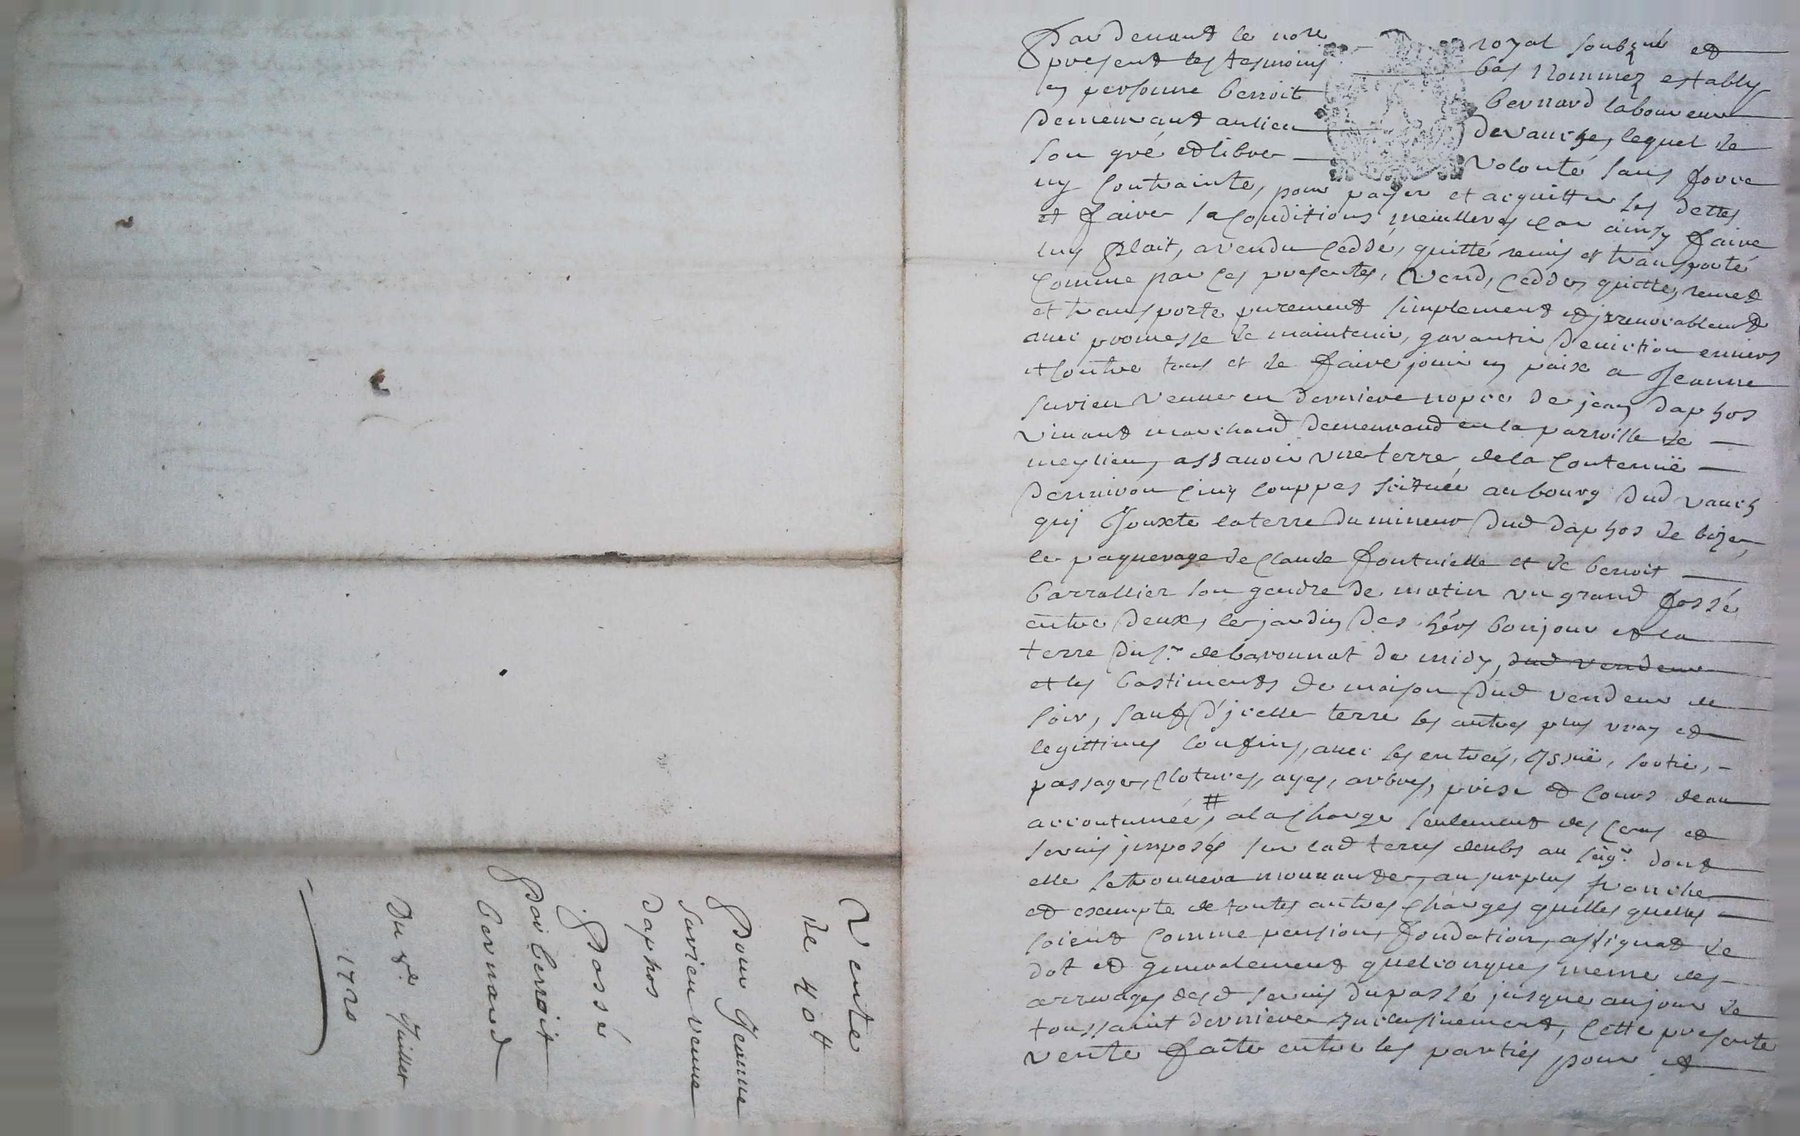 Vente
de 40#
Pour Jeanne
Savieu veuve
Daphos
Passé
Par benoit
bernard
Du Juillet
1720
Pardevant le nore royal soubzné et
present les tesmoins bas nommez estably
en personne benoit bernard laboureur
demeurant au lieu de vauche, lequel de
son gré et libre volonté sans force
ny contrainte, pour payer et acquitter ses dettes
et faire sa conditions meilleures car ainsy faire
luy plait, a vendu ceddé, quitté remis et transporté
comme par ces presentes, vend, cedde, quitte, remet
et transporte purement simplement et irrevocablement
avec promesse de maintenir, garantir d'eviction envers
et contre tous et de faire jouir en paix a Jeanne
savieu veuve en derniere nopce de jean daphos
vivant marchand demeurand en la parroisse de
meylieu, assavoir une terre de la contenuë
d'environ cinq couppes scituée au bourg dud vauch
qui jouxte la terre du mineur dud daphos de bize,
le paquerage de claude fontvielle et de benoit
barrallier son gendre de matin un grand fossé
entre deux, le jardin des hérs bonjour et la
terre du sr. de baronnat de midy, dud vendeur
et les bastiments de maison dud vendeur de
soir, sauf d'jcelle terre les autres plus vray et
legittimes confins, avec ses entrées, issuë, sortie,
passages, clotures, ayes, arbres, prise et cours deau
accoutumée, # a la charge seulement des cens et
servis imposés sur lad terre deubs au seigr. dont
elle se trouvera mouvante, au surplus franche
et exempte de toutes autres charges quelles quelles
soient comme pension, fondation, assignat de
dot et generalement quelconques meme des
arrerages desd servis du passé jusque au jour de
toussaint derniere inclusivement, cette presente
vente faite entre les parties pour et